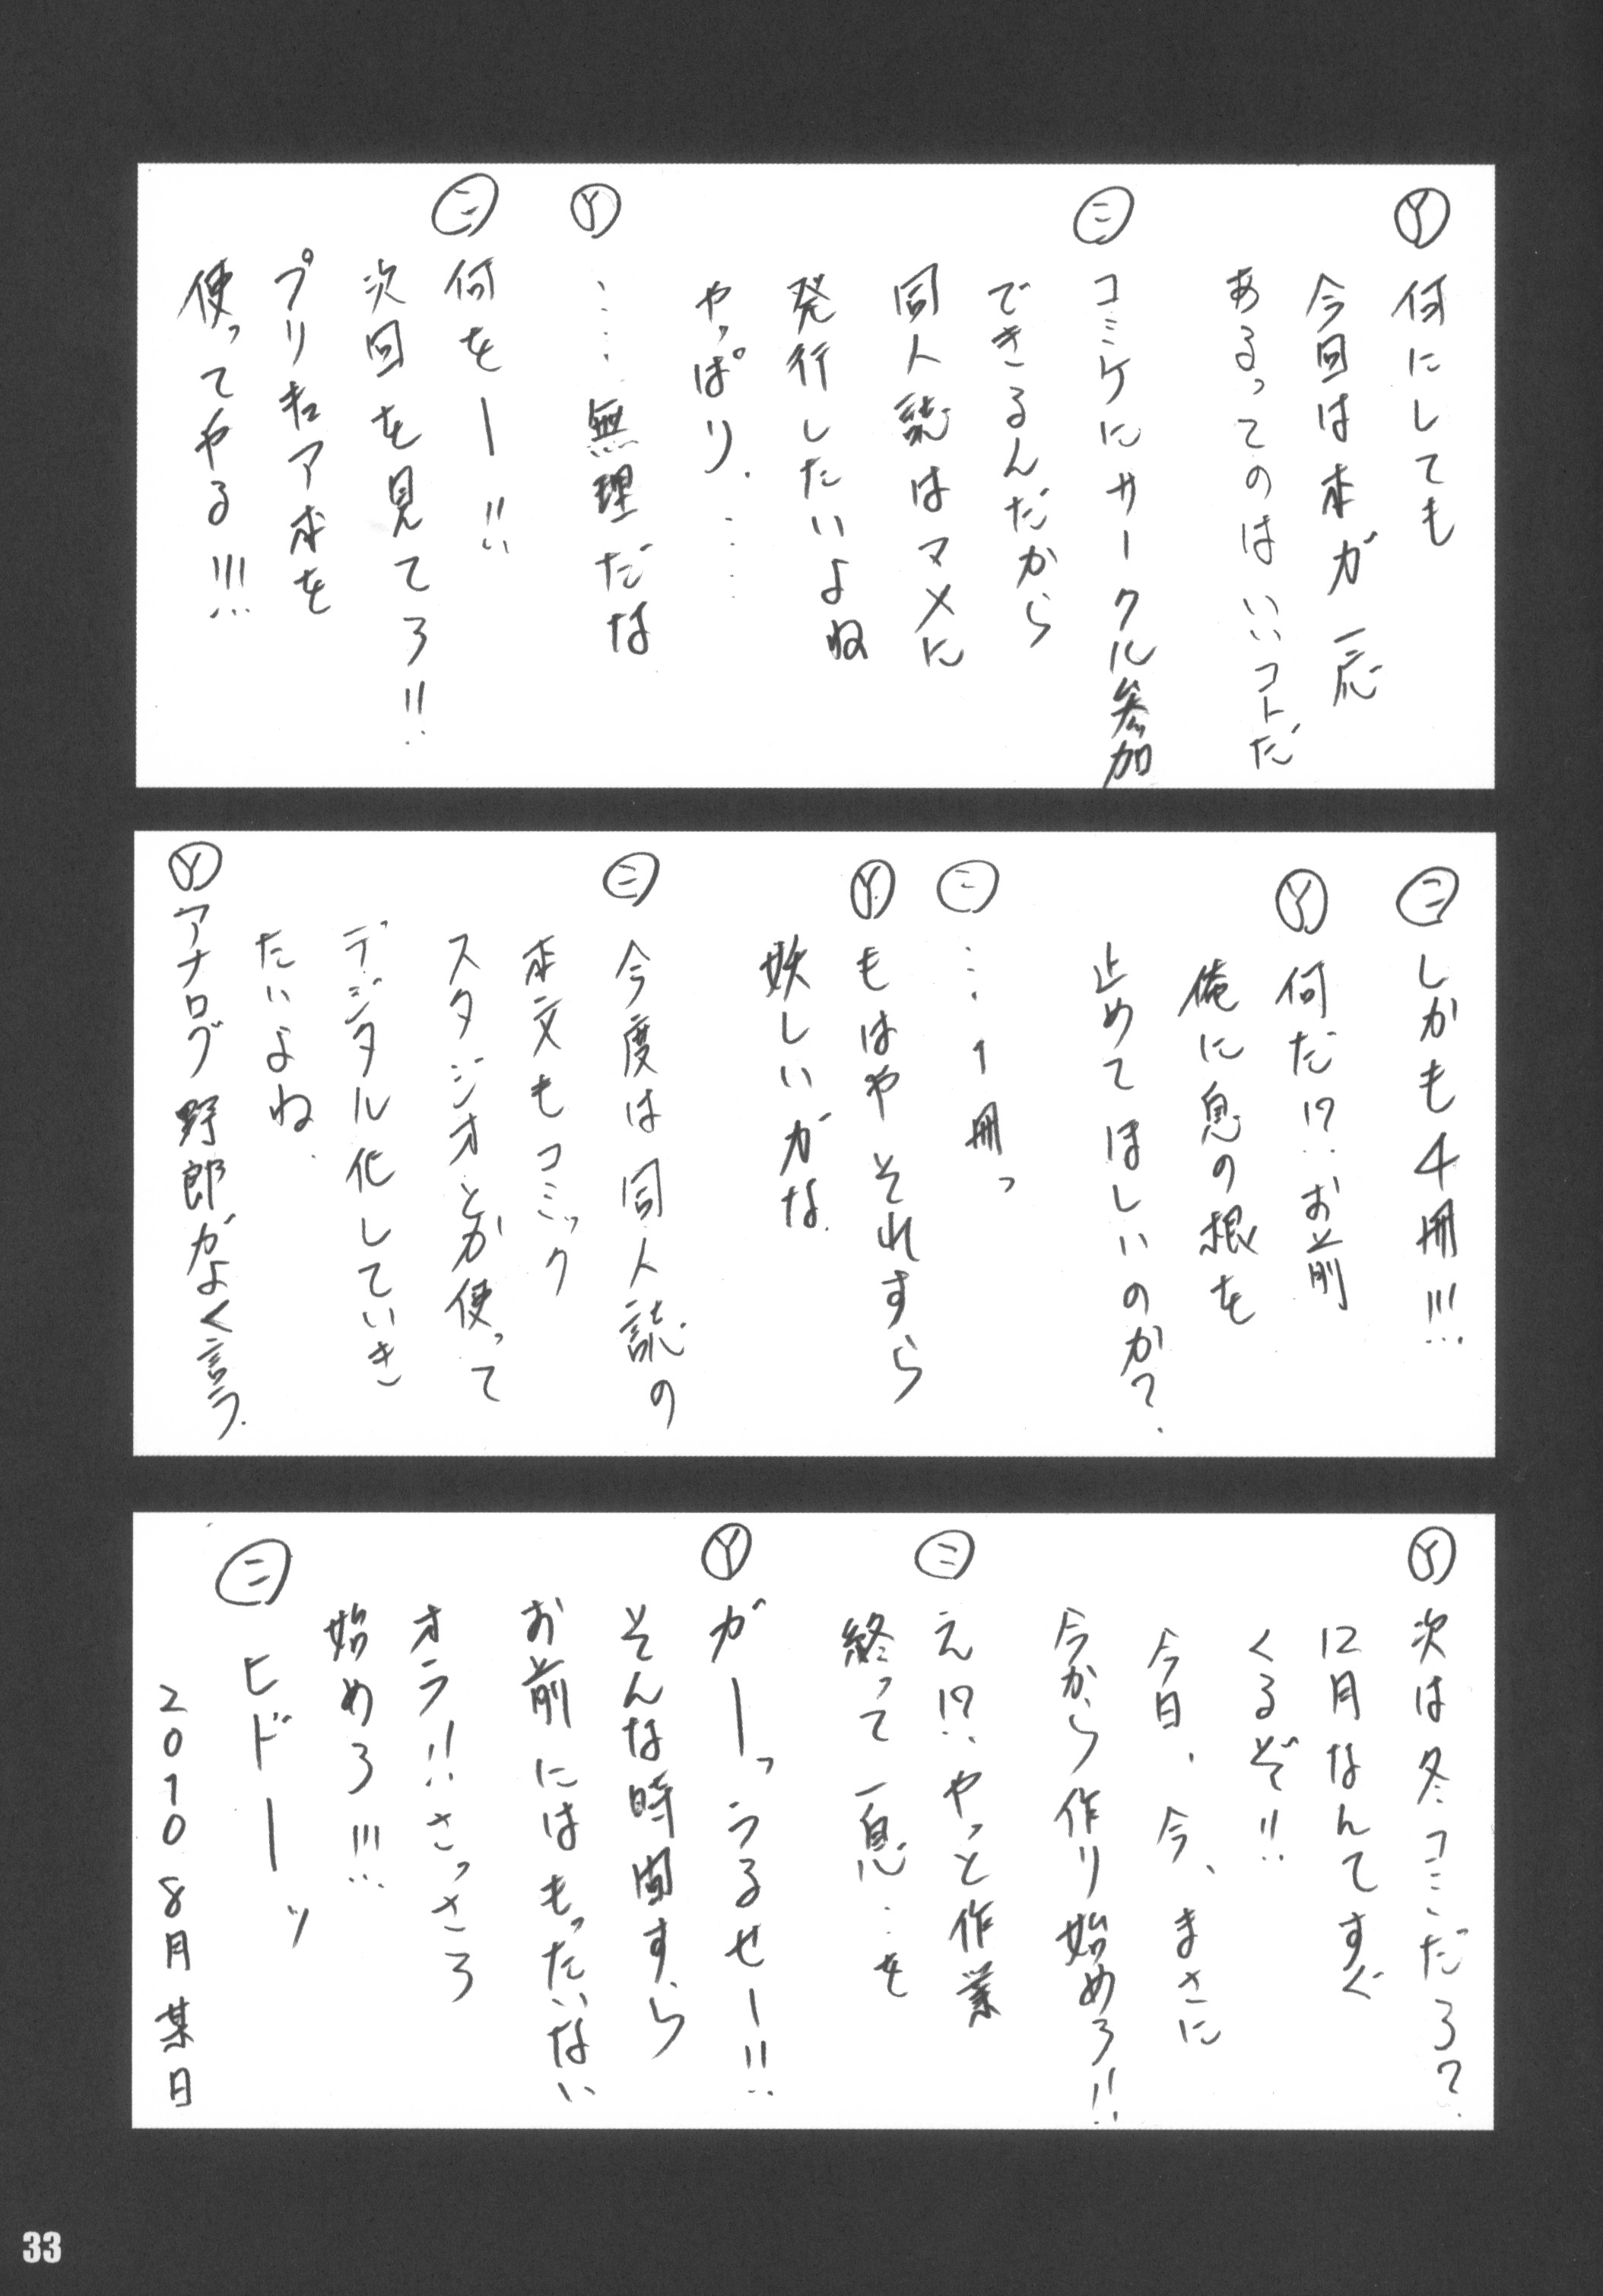 Ⓨ何にしても
今回は本が一応
あるってのはいいコトだ
㊁コミケにサークル参加
できるんだから
同人誌はマメに
発行したいよね
やっぱり……
Ⓨ……無理だな
㊁何をー!!
次回を見てろ!!
プリキュア本を
使ってやる!!!
㊁しかも4冊!!!
Ⓨ何だ!?お前
俺に息の根を
止めてほしいのか?
㊁…1冊っ
Ⓨもはやそれすら
妖しいがな
㊁今度は同人誌の
本文もコミック
スタジオとか使って
デジタル化していき
たいよね
Ⓨアナログ野郎がよく言う
Ⓨ次は冬コミだろ?
12月なんてすぐ
くるぞ!!
今日、今、まさに
今から作り始めろ!!
㊁え!?やっと作業
終って一息…を
Ⓨがーっうるせー!!
そんな時間すら
お前にはもったいない
オラ!!さっさろ
始めろ!!!
㊁ヒドーッ
2010 8月 某日
33